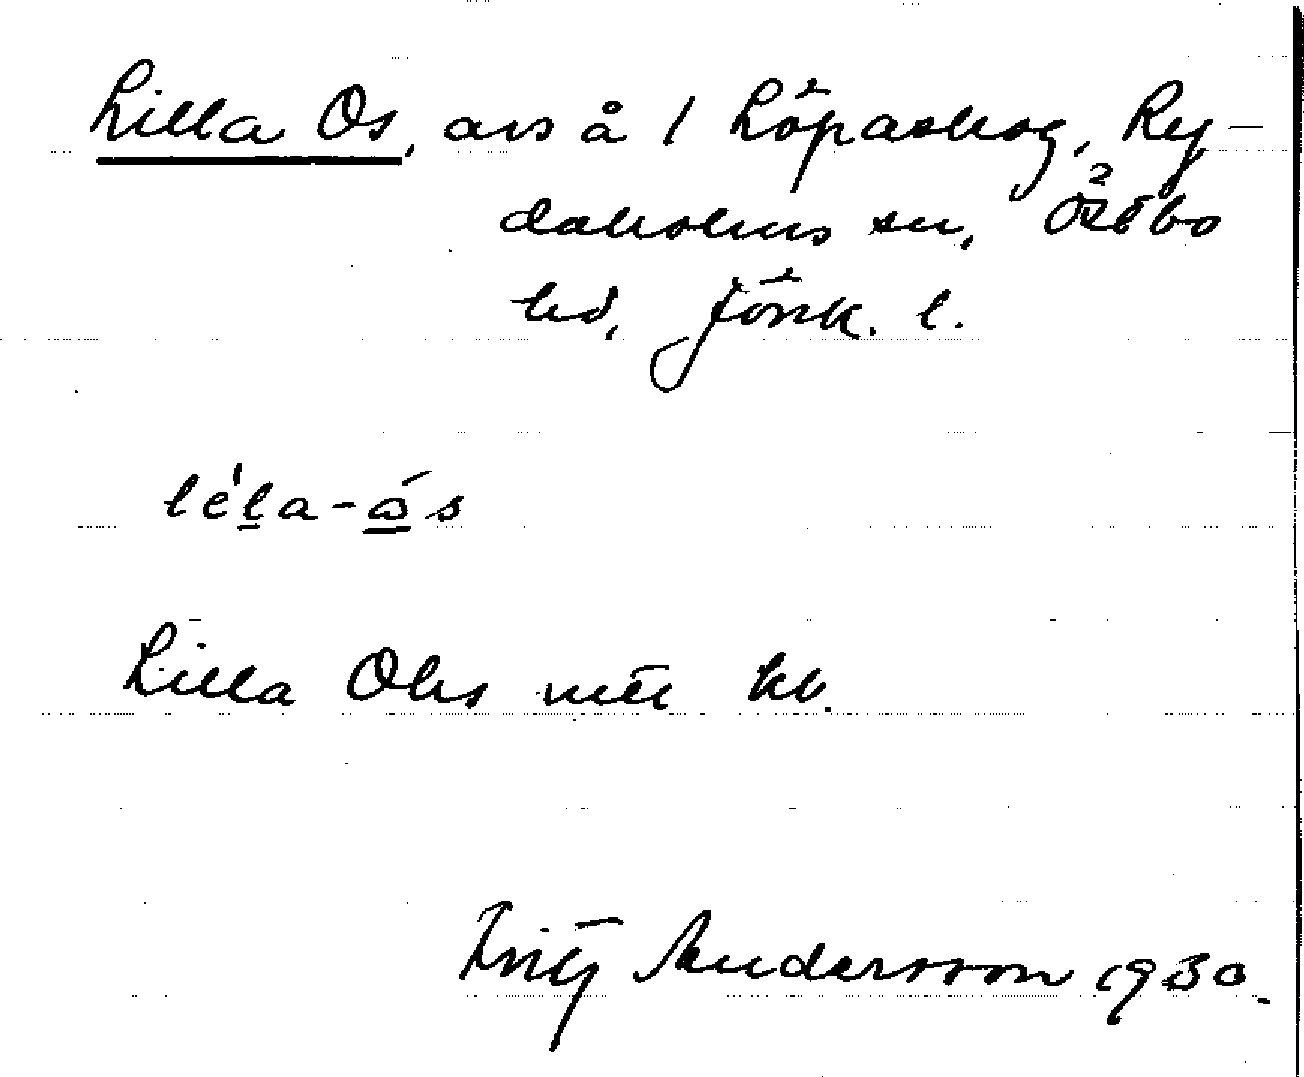 Lilla Os, avs å 1 Löpaskog, Ry-
daholms sn, Östbo
hd, Jönk. l.
lé'la-ås
Lilla Ohs uti kb.
Fritz Andersson 1930.